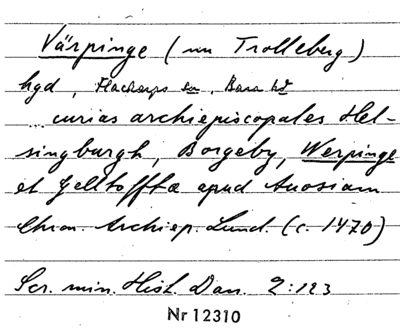 Värpinge (nu Trolleberg)
hgd, Flackarps sn, Bara hd
... curias archiepiscopales Hel-
singburgh, Borgeby, Werpinge
et Gelltofftæ apud Auosiam
Chron. Archiep. Lund. (c. 1470)
Scr. min. Hist. Dan. 2:123
Nr 12310